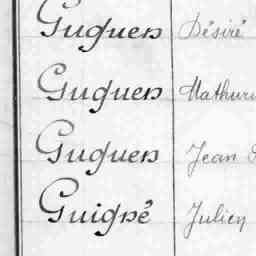 Guguen Désiré
Guguen Mathuri
Guguen Jean
Guigné Julien